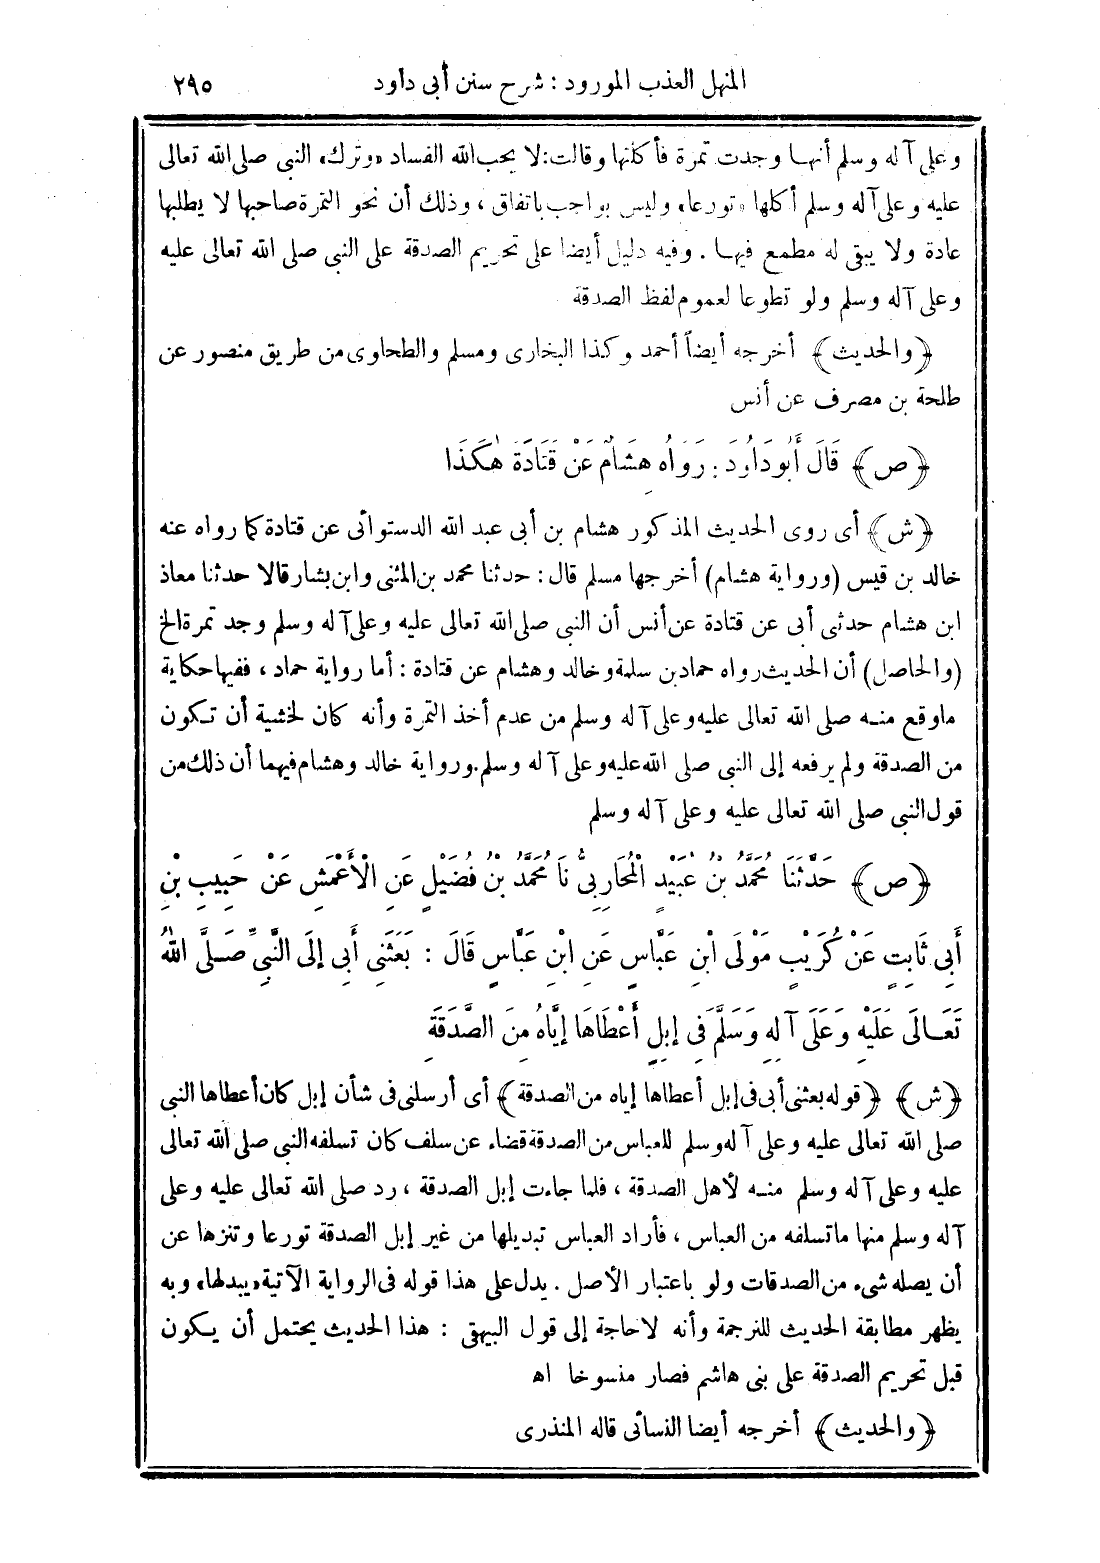 المنهل العذب المورود : شرح سنن أبى داود ٢٩٥
وعلى آله وسلم أنها وجدت تمرة فأكلتها وقالت: لا يحب الله الفساد «وترك» النبى صلى الله تعالى
عليه وعلى آله وسلم أكلها «تورعا» وليس بواجب باتفاق ، وذلك أن نحو التمرة صاحبها لا يطلبها
عادة ولا يبقى له مطمع فيها . وفيه دليل أيضا على تحريم الصدقة على النبى صلى الله تعالى عليه
وعلى آله وسلم ولو تطوعا لعموم لفظ الصدقة
﴿والحديث﴾ أخرجه أيضاً أحمد وكذا البخارى ومسلم والطحاوى من طريق منصور عن
طلحة بن مصرف عن أنس
﴿ص﴾ قَالَ أَبُو دَاوُدَ : رَوَاهُ هِشَامٌ عَنْ قَتَادَةَ هٰكَذَا
﴿ش﴾ أى روى الحديث المذكور هشام بن أبى عبد الله الدستوائى عن قتادة كما رواه عنه
خالد بن قيس (ورواية هشام) أخرجها مسلم قال : حدثنا محمد بن المثنى وابن بشار قالا حدثنا معاذ
ابن هشام حدثنى أبى عن قتادة عن أنس أن النبى صلى الله تعالى عليه وعلى آله وسلم وجد تمرة الخ
(والحاصل) أن الحديث رواه حماد بن سلمة وخالد وهشام عن قتادة : أما رواية حماد ، ففيها حكاية
ماوقع منه صلى الله تعالى عليه وعلى آله وسلم من عدم أخذ التمرة وأنه كان لخشية أن تكون
من الصدقة ولم يرفعه إلى النبى صلى الله عليه وعلى آله وسلم. ورواية خالد وهشام فيهما أن ذلك من
قول النبى صلى الله تعالى عليه وعلى آله وسلم
﴿ص﴾ حَدَّثَنَا مُحَمَّدُ بْنُ عُبَيْدٍ الْمُحَارِبِىُّ نَا مُحَمَّدُ بْنُ فُضَيْلٍ عَنِ الْأَعْمَشِ عَنْ حَبِيبِ بْنِ
أَبِى ثَابِتٍ عَنْ كُرَيْبٍ مَوْلَى ابْنِ عَبَّاسٍ عَنِ ابْنِ عَبَّاسٍ قَالَ : بَعَثَنِى أَبِى إِلَى النَّبِىِّ صَلَّى اللهُ
تَعَالَى عَلَيْهِ وَعَلَى آلِهِ وَسَلَّمَ فِى إِبِلٍ أَعْطَاهَا إِيَّاهُ مِنَ الصَّدَقَةِ
﴿ش﴾ ﴿قوله بعثنى أبى فى إبل أعطاها إياه من الصدقة﴾ أى أرسلنى فى شأن إبل كان أعطاها النبى
صلى الله تعالى عليه وعلى آله وسلم للعباس من الصدقة قضاء عن سلف كان تسلفه النبى صلى الله تعالى
عليه وعلى آله وسلم منه لأهل الصدقة ، فلما جاءت إبل الصدقة ، رد صلى الله تعالى عليه وعلى
آله وسلم منها ماتسلفه من العباس ، فأراد العباس تبديلها من غير إبل الصدقة تورعا وتنزها عن
أن يصله شىء من الصدقات ولو باعتبار الأصل . يدل على هذا قوله فى الرواية الآتية «يبدلها» وبه
يظهر مطابقة الحديث للترجمة وأنه لاحاجة إلى قول البيهقى : هذا الحديث يحتمل أن يكون
قبل تحريم الصدقة على بنى هاشم فصار منسوخا اه
﴿والحديث﴾ أخرجه أيضا النسائى قاله المنذرى